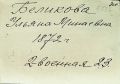 Беликова
Ульяна Минаевна
1872 г
2 военная 23